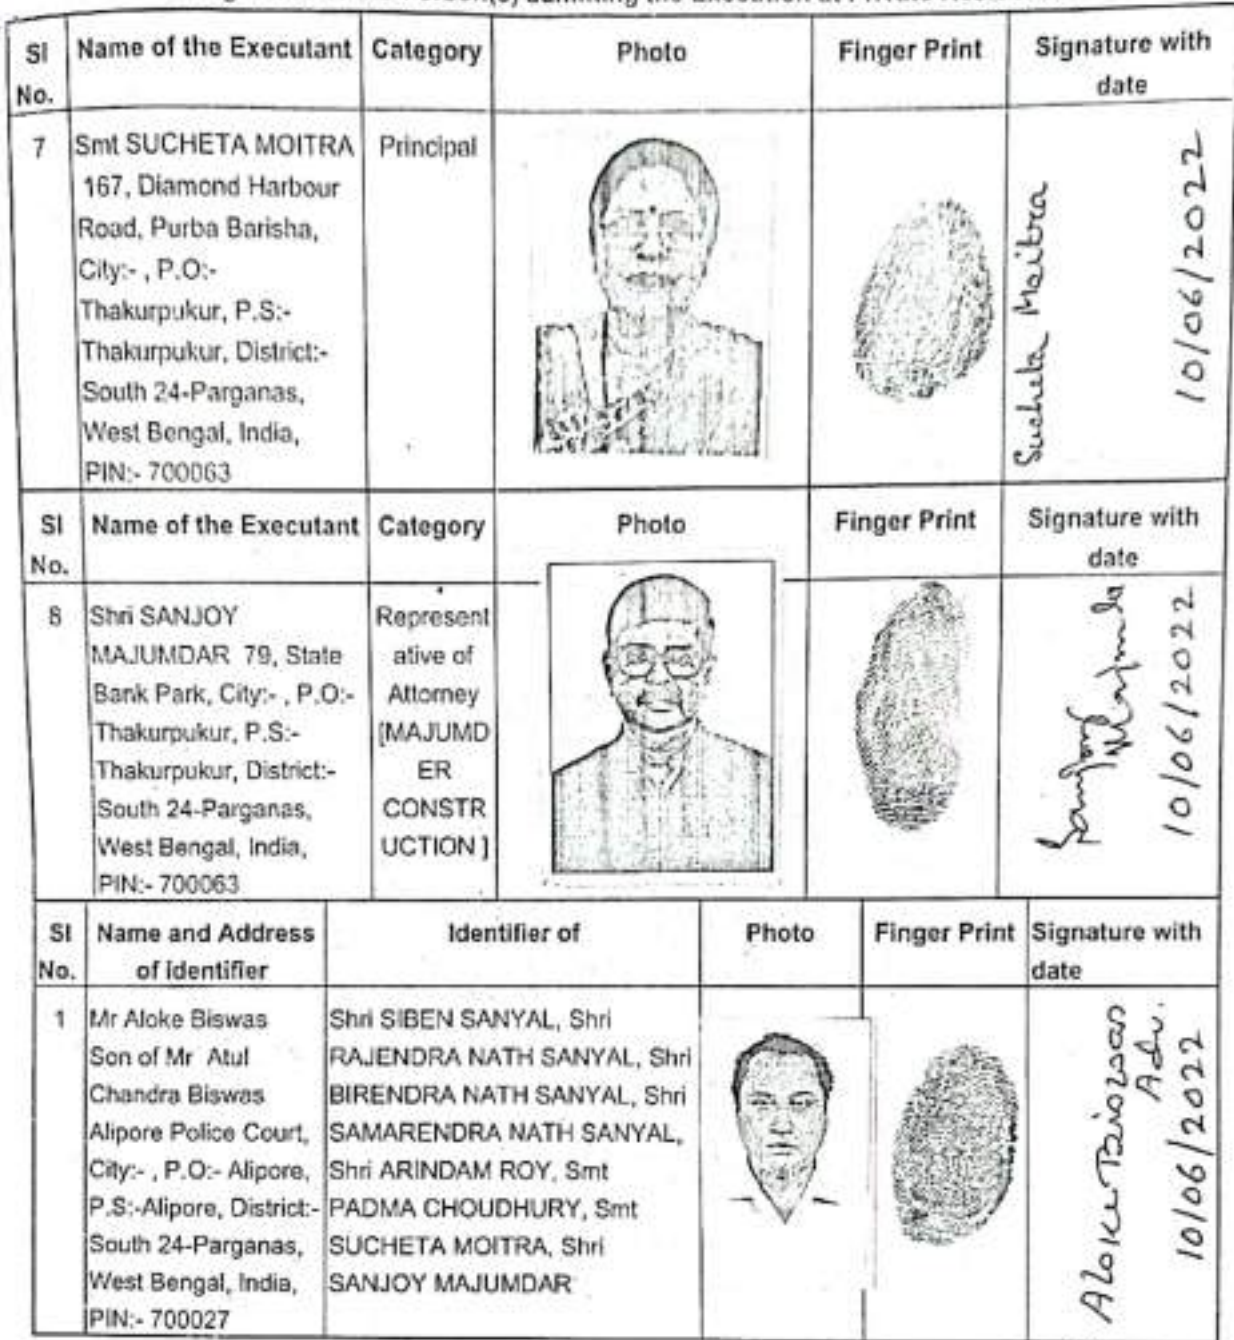 Sl No. Name of the Executant Category Photo Finger Print Signature with date
7 Smt SUCHETA MOITRA Principal
167, Diamond Harbour
Road, Purba Barisha,
City:- , P.O:-
Thakurpukur, P.S:-
Thakurpukur, District:-
South 24-Parganas,
West Bengal, India,
PIN:- 700063
Sucheta Moitra
10/06/2022
Sl No. Name of the Executant Category Photo Finger Print Signature with date
8 Shri SANJOY
MAJUMDAR 79, State
Bank Park, City:- , P.O:-
Thakurpukur, P.S:-
Thakurpukur, District:-
South 24-Parganas,
West Bengal, India,
PIN:- 700063
Represent
ative of
Attorney
[MAJUMD
ER
CONSTR
UCTION ]
Sanjoy Majumdar
10/06/2022
Sl No. Name and Address of identifier Identifier of Photo Finger Print Signature with date
1 Mr Aloke Biswas
Son of Mr Atul
Chandra Biswas
Alipore Police Court,
City:- , P.O:- Alipore,
P.S:-Alipore, District:-
South 24-Parganas,
West Bengal, India,
PIN:- 700027
Shri SIBEN SANYAL, Shri
RAJENDRA NATH SANYAL, Shri
BIRENDRA NATH SANYAL, Shri
SAMARENDRA NATH SANYAL,
Shri ARINDAM ROY, Smt
PADMA CHOUDHURY, Smt
SUCHETA MOITRA, Shri
SANJOY MAJUMDAR
Aloke Biswas
Adv.
10/06/2022